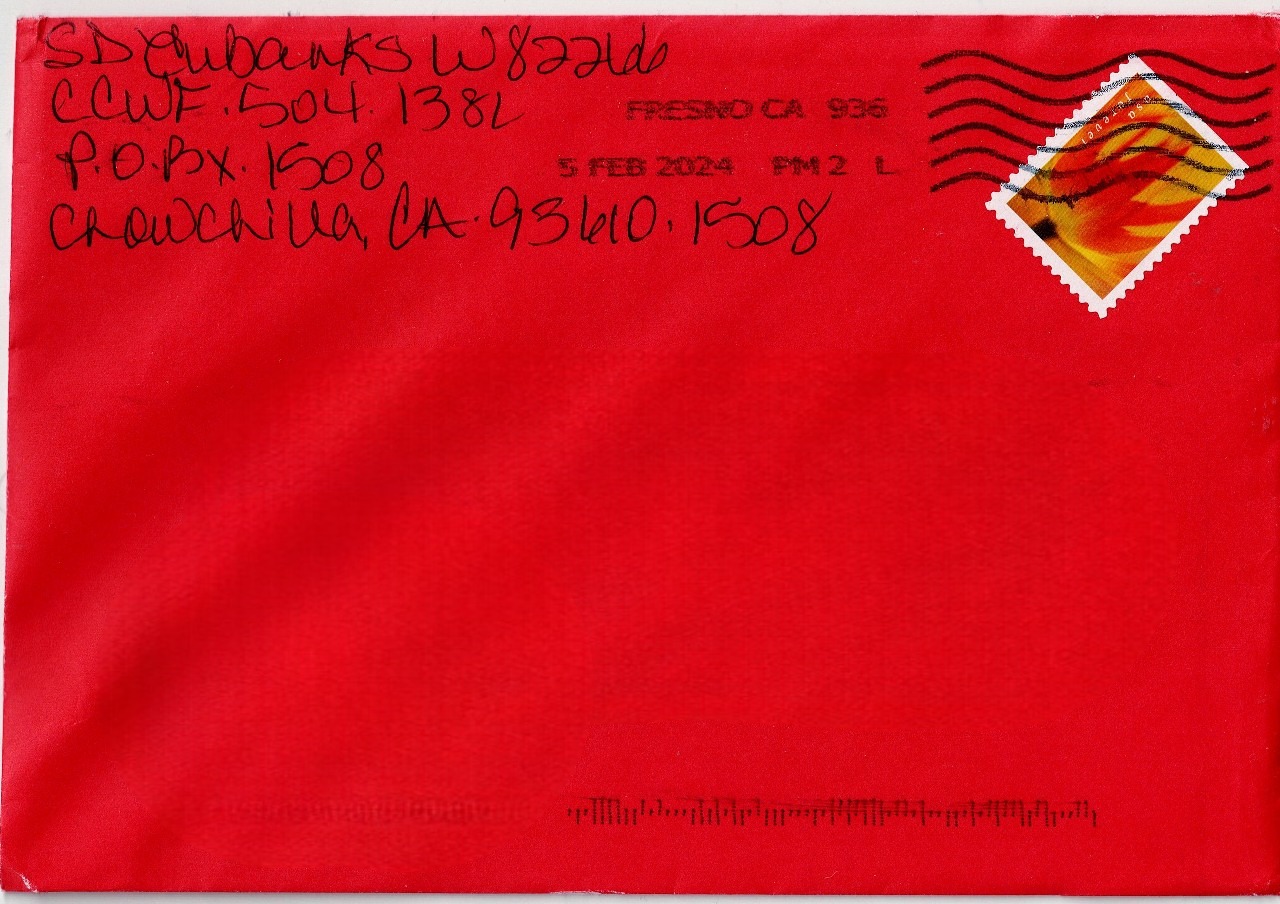 SD Eubanks W82266
CCWF. 504. 138L
P.O. Bx. 1508
Chowchilla, CA. 93610. 1508
FRESNO CA 936
5 FEB 2024 PM 2 L
USA
forever